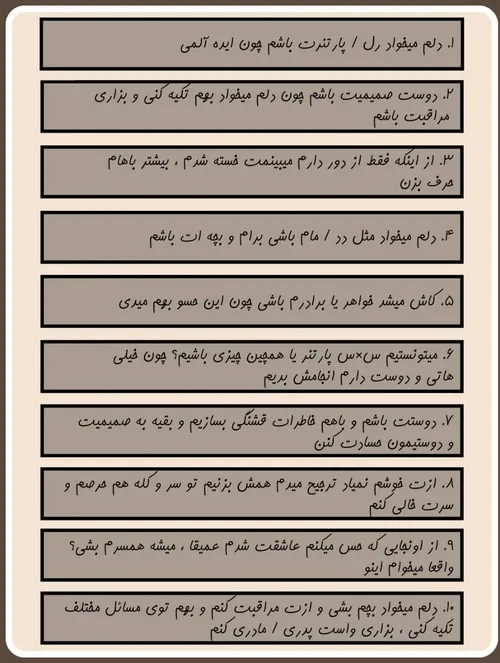 ۱. دلم میخواد رل / پارتنرت باشم چون ایده آلمی
۲. دوست صمیمیت باشم چون دلم میخواد بهم تکیه کنی و بزاری
مراقبت باشم
۳. از اینکه فقط از دور دارم میبینمت خسته شدم ، بیشتر باهام
حرف بزن
۴. دلم میخواد مثل دد / مام باشی برام و بچه ات باشم
۵. کاش میشد خواهر یا برادرم باشی چون این حسو بهم میدی
۶. میتونستیم س×س پارتنر یا همچین چیزی باشیم؟ چون خیلی
هاتی و دوست دارم انجامش بدیم
۷. دوستت باشم و باهم خاطرات قشنگی بسازیم و بقیه به صمیمیت
و دوستیمون حسادت کنن
۸. ازت خوشم نمیاد ترجیح میدم همش بزنیم تو سر و کله هم حرصم و
سرت خالی کنم
۹. از اونجایی که حس میکنم عاشقت شدم عمیقا ، میشه همسرم بشی؟
واقعا میخوام اینو
۱۰. دلم میخواد بچم بشی و ازت مراقبت کنم و بهم توی مسائل مختلف
تکیه کنی ، بزاری واست پدری / مادری کنم